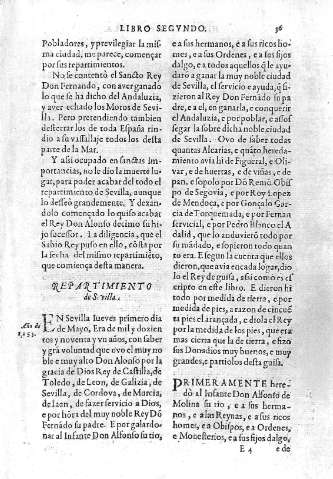 LIBRO SEGVNDO. 36
Pobladores, y previlegiar la mis
ma ciudad, me parece, començar
por sus repartimientos.
No se contentò el Sancto Rey
Don Fernando, con aver ganado
lo que se ha dicho del Andaluzia,
y aver echado los Moros de Sevi-
lla. Pero pretendiendo tambien
desterrarlos de toda España rin-
dio a su vassallaje todos los desta
parte de la Mar.
Y assi ocupado en sanctas im-
portancias, no le dio la muerte lu-
gar, para poder acabar del todo el
repartimiento de Sevilla, aunque
lo desseò grandemente. Y dexan-
dolo començado lo quiso acabar
el Rey Don Alonso decimo su hi-
jo sucessor. La diligencia, que el
Sabio Rey puso en ello, cõsta por
la fecha del mismo repartimiẽto,
que comiença desta manera.
REPARTIMIENTO
de Sevilla.
Año de
1253.
EN Sevilla Iueves primero dia
de Mayo, Era de mil y dozien
tos y noventa y un años, con saber
y gra voluntad que ovo el muy no
ble e muy alto Don Alonso por la
gracia de Dios Rey de Castilla, de
Toledo, de Leon, de Galizia, de
Sevilla, de Cordova, de Murcia,
de Iaen, de fazer servicio a Dios,
e por hõra del muy noble Rey Dõ
Fernando su padre. E por galardo-
nar al Infante Don Alfonso su tio,
e a sus hermanos, e a sus ricos ho
mes, e a sus Ordenes, e a sus fijos
dalgo, e a todos aquellos q̃ le ayu
daro a ganar la muy noble ciudad
de Sevilla, el servicio e ayuda, q̃ fi
zieron al Rey Don Fernãdo su pa
dre, e a el, en ganarla, e conquerir
el Andaluzia, e por poblar, e a sof
segar la sobre dicha noble ciudad
de Sevilla. Ovo de saber todas
quantas Alcarias, e quãto hereda-
miento avia hi de Figueral, e Oli-
var, e de huertas, e de viñas, e de
pan, e sopolo por Dõ Remõ Obis
po de Segovia, e por Roy Lopez
de Mendoça, e por Gonçalo Gar-
cia de Torquemada, e por Fernan
Servicial, e por Pedro Blãsco el A
dalid, que lo anduvierõ todo por
su mãdado, e sopieron todo quan
to era. E segun la cuenta que ellos
dieron, que avia encada logar, dio
lo el Rey de guisa, assi como es es
cripto en este libro. E dieron hi
todo por medida de tierra, e por
medida de pies, a razon de cincuẽ
ta pies el arançada, e diola el Rey
por la medida de los pies, que era
mas cierta que la de tierra, e fizo
sus Donadios muy buenos, e muy
grandes, e partiolos desta guisa.
PRIMERAMENTE here-
dò al Infante Don Alfonso de
Molina su tio, e a sus herma-
nos, e a las Reynas, e a sus ricos
homes, e a Obispos, e a Ordenes,
e Monesterios, e a sus fijos dalgo,
E 4 e de